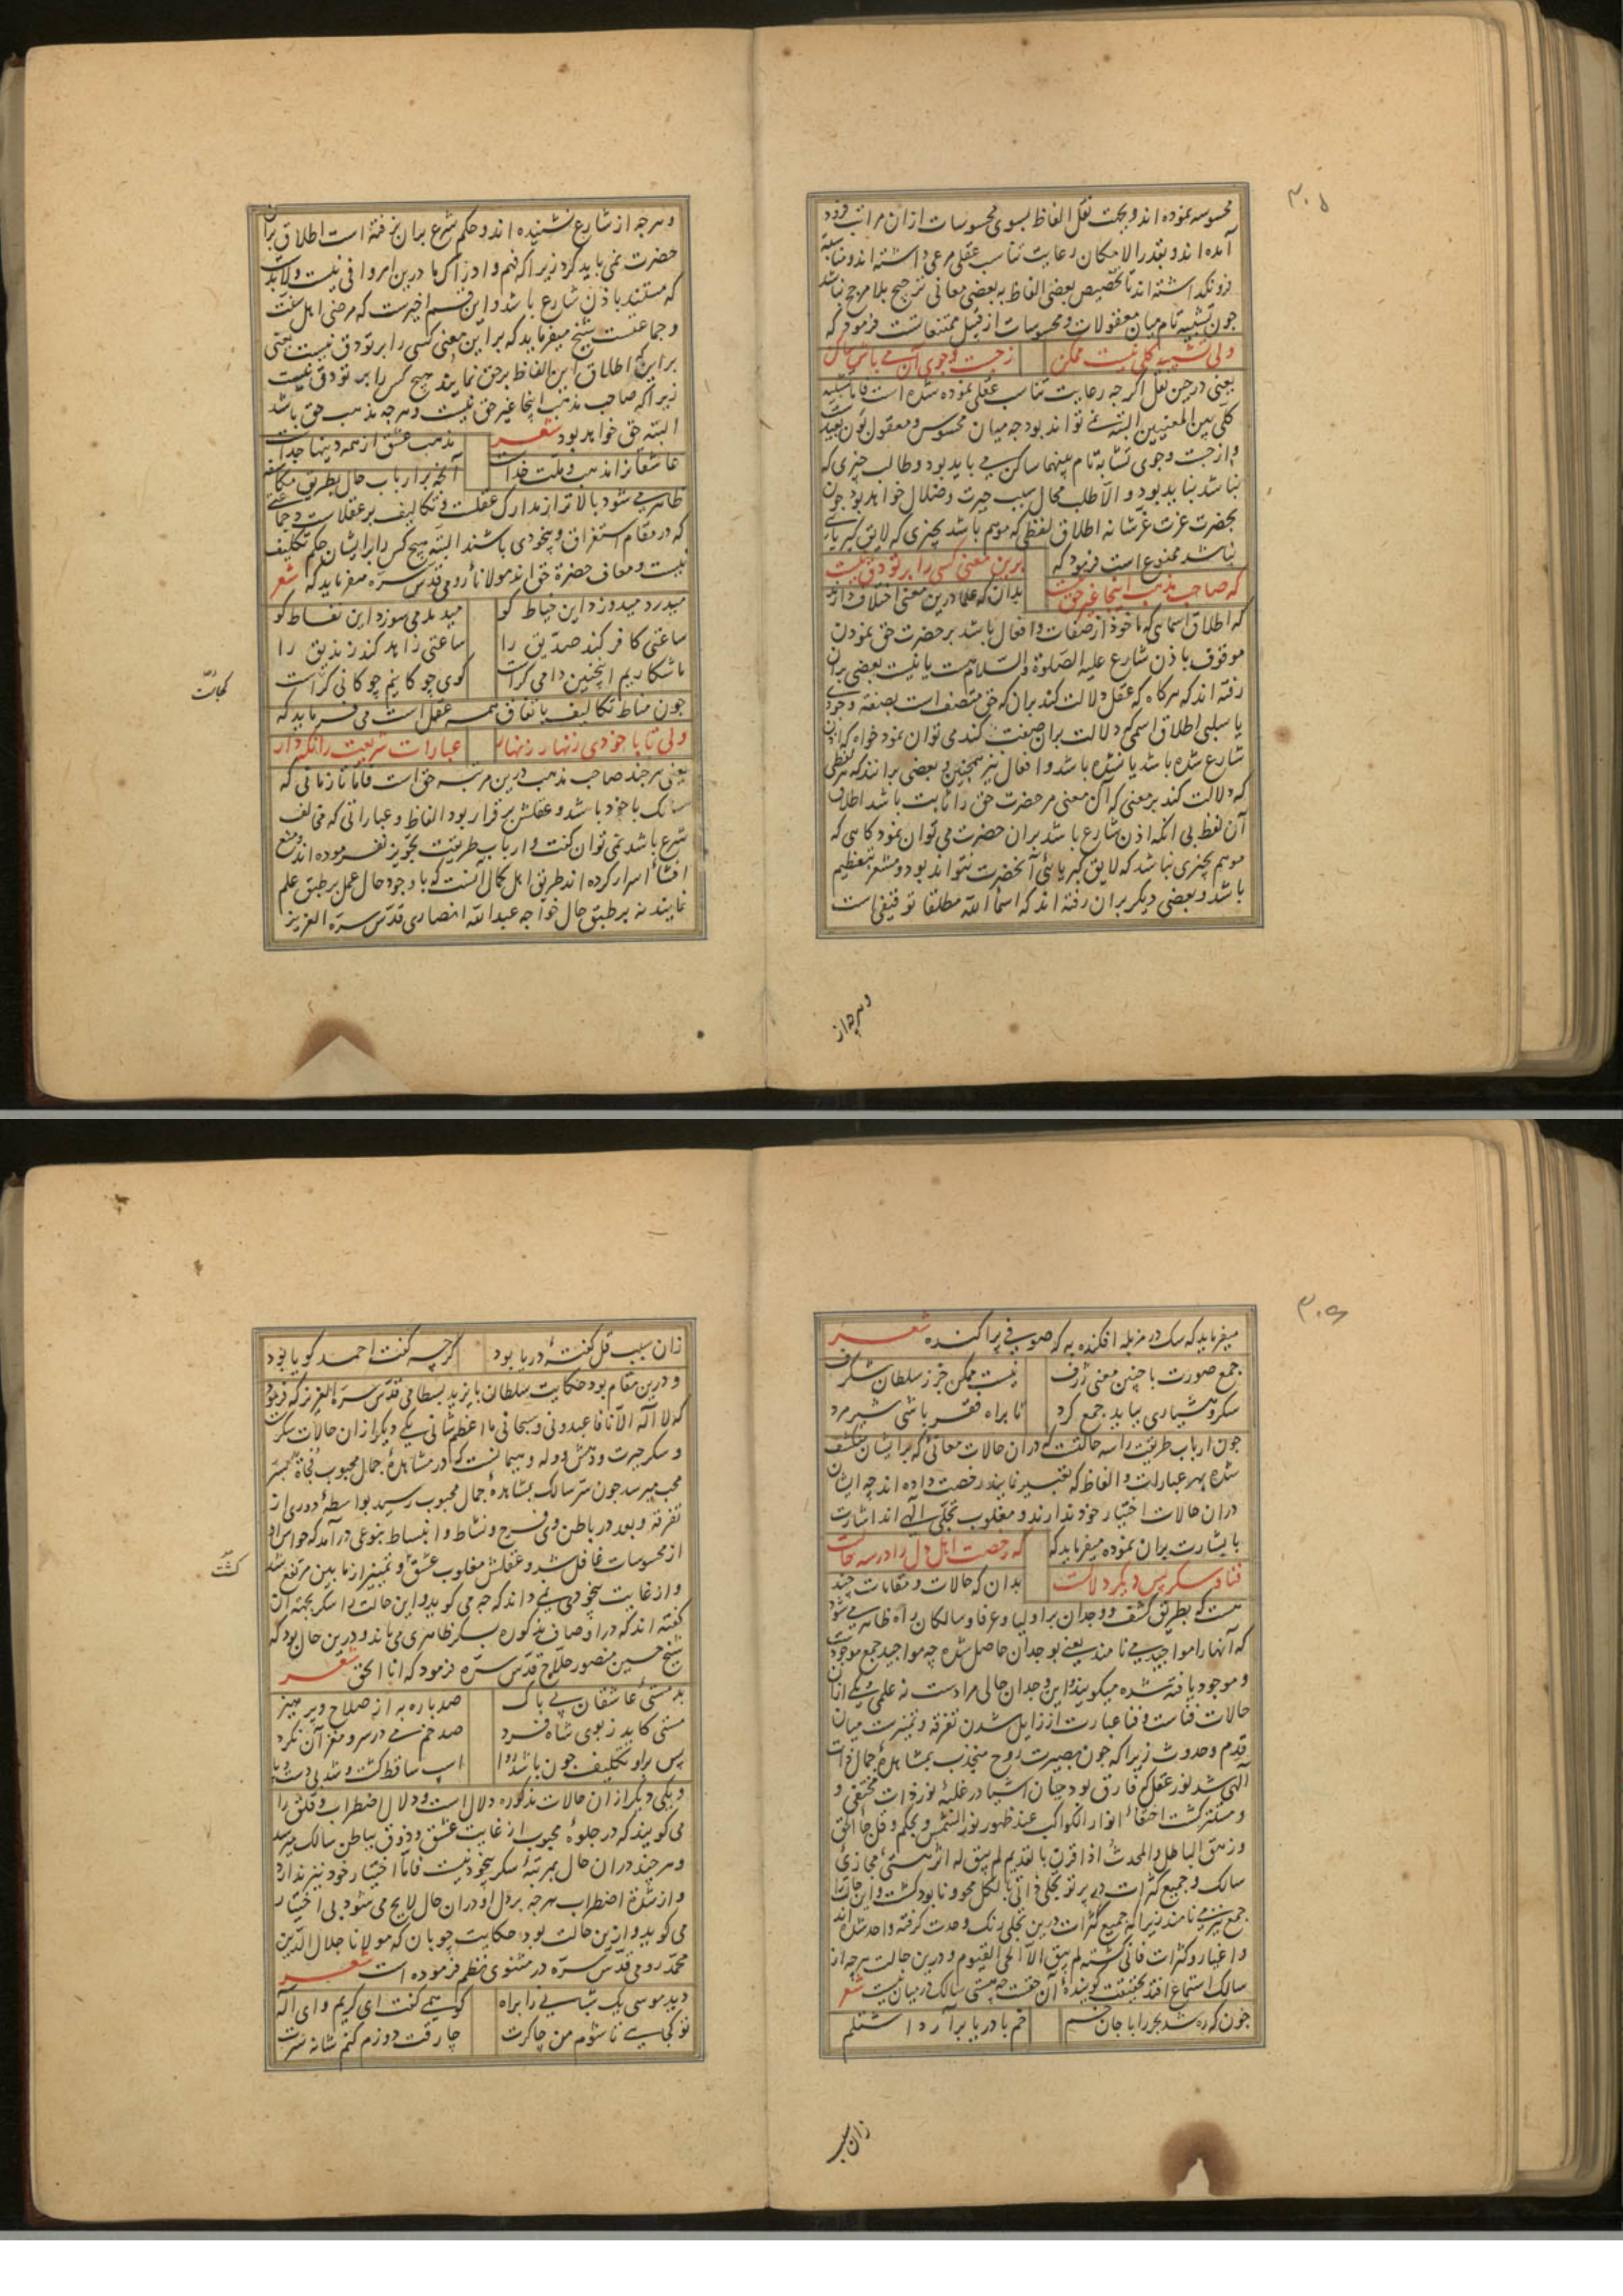 ۳۰۵
محسوسه نموده اند و بجهت نقل الفاظ بسوی محسوسات ازان مراتب فرود
آمده اند و بقدر الامکان رعایت تناسب عقلی مرعی داشته اند و مناسبة
فرو نگذاشته اند تا تخصیص بعضی الفاظ به بعضی معانی ترجیح بلا مرجح نباشد
جون تشبیه تام میان معقولات و محسوسات از قبیل ممتنعاتست فرمود که
ولی تشبیه کلی نیست ممکن ز جست و جوی آن می باش ساکن
یعنی در حین نقل اکرجه رعایت تناسب عقلی نموده شده است فاما تشبیه
کلی بین المعنیین البته نمی تواند بود جه میان محسوس و معقول بون بعیدست
و از جست و جوی تشابه تام بینهما ساکن می باید بود و طالب جیزی که
نباشد نباید بود و الا طلب محال سبب حیرت و ضلال خواهد بود جون
بحضرت عزت عز شانه اطلاق لفظی که موهم باشد بچیزی که لایق کبریای
نباشد ممنوع است فرمود که
برین معنی کسی را بر تو دق نیست
که صاحب مذهب اینجا غیر حق نیست
بدان که علما درین معنی اختلاف دارند
که اطلاق اسمایی که ماخوذ از صفات و افعال باشد بر حضرت حق نمودن
موقوف باذن شارع علیه الصلوة والسلام هست یا نیست بعضی بران
رفته اند که هرکاه که عقل دلالت کند بران که حق متصف است بصفة وجودی
یا سلبی اطلاق اسمی که دلالت بران صفت کند می توان نمود خواه که اذن
شارع شده باشد یا نشده باشد و افعال نیز همچنین و بعضی برانند که هر لفظی
که دلالت کند بر معنی که آن معنی مر حضرت حق را ثابت باشد اطلاق
آن لفظ بی آنکه اذن شارع باشد بران حضرت می توان نمود کاهی که
موهم بچیزی نباشد که لایق کبریائی آنحضرت نتواند بود و مشعر بتعظیم
باشد و بعضی دیکر بران رفته اند که اسماء الله مطلقا توقیفی است
و هرجه از
و هرجه از شارع نشنیده اند و حکم شرع بران نرفته است اطلاق بران
حضرت نمی باید کرد زیرا که فهم و ادراک ما درین امر وافی نیست و لابد
که مستند باذن شارع باشد و این قسم اخیرست که مرضی اهل سنت
و جماعتست شیخ میفرماید که بر این معنی کسی را بر تو دق نیست یعنی
برین که اطلاق این الفاظ بر حق نمایند هیچ کس را بر تو دق نیست
زیرا که صاحب مذهب اینجا غیر حق نیست و هرجه مذهب حق باشد
البته حق خواهد بود شعر
مذهب عشق از همه دینها جداست
عاشقان را مذهب و ملت خداست
آنچه بر ارباب حال بطریق مکاشفه
ظاهر می شود بالاتر از مدارک عقلست و تکالیف بر عقلاست و جماعتی
که در مقام استغراق و بیخودی باشند البته هیچ کس را بر ایشان حکم تکلیف
نیست و معاف حضرة حق اند مولانا رومی قدس سره میفرماید که شعر
میدرد میدوزد این خیاط کو میدمد می سوزد این نفاط کو
ساعتی کافر کند صدیق را ساعتی زاهد کند زندیق را
ما شکاریم اینچنین دامی کراست کوی جوکانیم جوکانی کراست
کجاست
جون مناط تکالیف باتفاق همه عقل است می فرماید که
ولی تا با خودی زنهار زنهار عبارات شریعت را نکه دار
یعنی هرجند صاحب مذهب درین مرتبه حق است فاما تا زمانی که
سالک با خود باشد و عقلش برقرار بود الفاظ و عباراتی که مخالف
شرع باشد نمی توان کفت و ارباب طریقت تجویز نفرموده اند و منع
افشاء اسرار کرده اند طریق اهل کمال آنست که با وجود حال عمل بر طبق علم
نمایند نه بر طبق حال خواجه عبدالله انصاری قدس سره العزیز
۳۰۶
میفرماید که سک در مزبله افکنده به که صوفی پراکنده شعر
جمع صورت با چنین معنی ژرف نیست ممکن جز ز سلطان شکرف
سکر و هشیاری بباید جمع کرد تا براه فقر باشی شیر مرد
جون ارباب طریقت را سه حالتست که دران حالات معانئی که بر ایشان منکشف
شده بهر عبارات و الفاظ که تعبیر نمایند رخصت داده اند چه ایشان
دران حالات اختیار خود ندارند و مغلوب تجلی الهی اند اشارت
با بشارت بران نموده میفرماید که
که رخصت اهل دل را در سه حالست
فنا و سکر پس دیکر دلالست
بدان که حالات و مقامات چند
هست که بطریق کشف و وجدان بر اولیا و عرفا و سالکان راه ظاهر می شود
که آنها را مواجید می نامند یعنی بوجدان حاصل شده چه مواجید جمع موجودست
و موجود یافته شده میکویند و این وجدان حالی مرادست نه علمی و یکی ازان
حالات فناست و فنا عبارت از زایل شدن تفرقه و تمییزست میان
قدم و حدوث زیرا که جون بصیرت روح منجذب بمشاهدۀ جمال ذات
الهی شد نور عقل که فارق بود میان اشیا در غلبۀ نور ذات مختفی و
و مستتر کشت اختفاء انوار الکواکب عند ظهور نور الشمس و بحکم و قل جاء الحق
و زهق الباطل و المحدث اذا قرن بالقدیم لم یبق له اثر هستی مجازی
سالک و جمیع کثرات در پرتو تجلی ذاتی بالکل محو و نابود کشت و این حالت را
جمع نیز می نامند زیرا که جمیع کثرات درین تجلی رنک وحدت کرفته واحد شده اند
و اغیار و کثرات فانی کشته لم یبق الا الحی القیوم و درین حالت هرچه از
سالک استماع افتد بحقیقت کویندۀ آن حقست چه هستی سالک در میان نیست شعر
جون که ره شد بحر را با جان خم خم با دریا برآرد اشتلم
زان سبب
زان سبب قل کفتۀ دریا بود کرچه کفت احمد کویا بود
و درین مقام بود حکایت سلطان بایزید بسطامی قدس سره العزیز که فرمود
که لا اله الا انا فاعبدونی و سبحانی ما اعظم شانی یکی دیکر ازان حالات سکرست
و سکر حیرت و دهش و وله و هیمانست که در مشاهدۀ جمال محبوب فجأة بسر
محب میرسد جون سر سالک بمشاهدۀ جمال محبوب رسید بواسطۀ دوری از
تفرقه و بعد در باطن وی فرح و نشاط و انبساط بنوعی درآمد که حواس او
از محسوسات غافل شد و عقلش مغلوب عشق و تمییز از ما بین مرتفع شد
کشت
و از غایت بیخودی نمی داند که چه می کوید و این حالت را سکر بجهته آن
کفته اند که در اوصاف مذکوره بسکر ظاهری می ماند و درین حال بود که
شیخ حسین منصور حلاج قدس سره فرمود که انا الحق شعر
بدمستی عاشقان بی باک صد باره به از صلاح و پرهیز
مستی کاید ز بوی شاه فرد صد خم می در سر و مغز آن نکرد
پس برو تکلیف جون باشد روا اسب ساقط کشت و شد بی دست و پا
و یکی دیکر ازان حالات مذکوره دلال است و دلال اضطراب و قلق را
می کویند که در جلوۀ محبوب از غایت عشق و ذوق بباطن سالک میرسد
و هرچند دران حال بمرتبۀ سکر بیخود نیست فاما اختیار خود نیز ندارد
و از شدة اضطراب هرجه بر دل او دران حال لایح می شود بی اختیار
می کوید و ازین حالت بود حکایت چوبان که مولانا جلال الدین
محمد رومی قدس سره در مثنوی نظم فرموده است شعر
دید موسی یک شبانی را براه کو همی کفت ای کریم و ای اله
تو کجایی تا شوم من چاکرت چارقت دوزم کنم شانه سرت